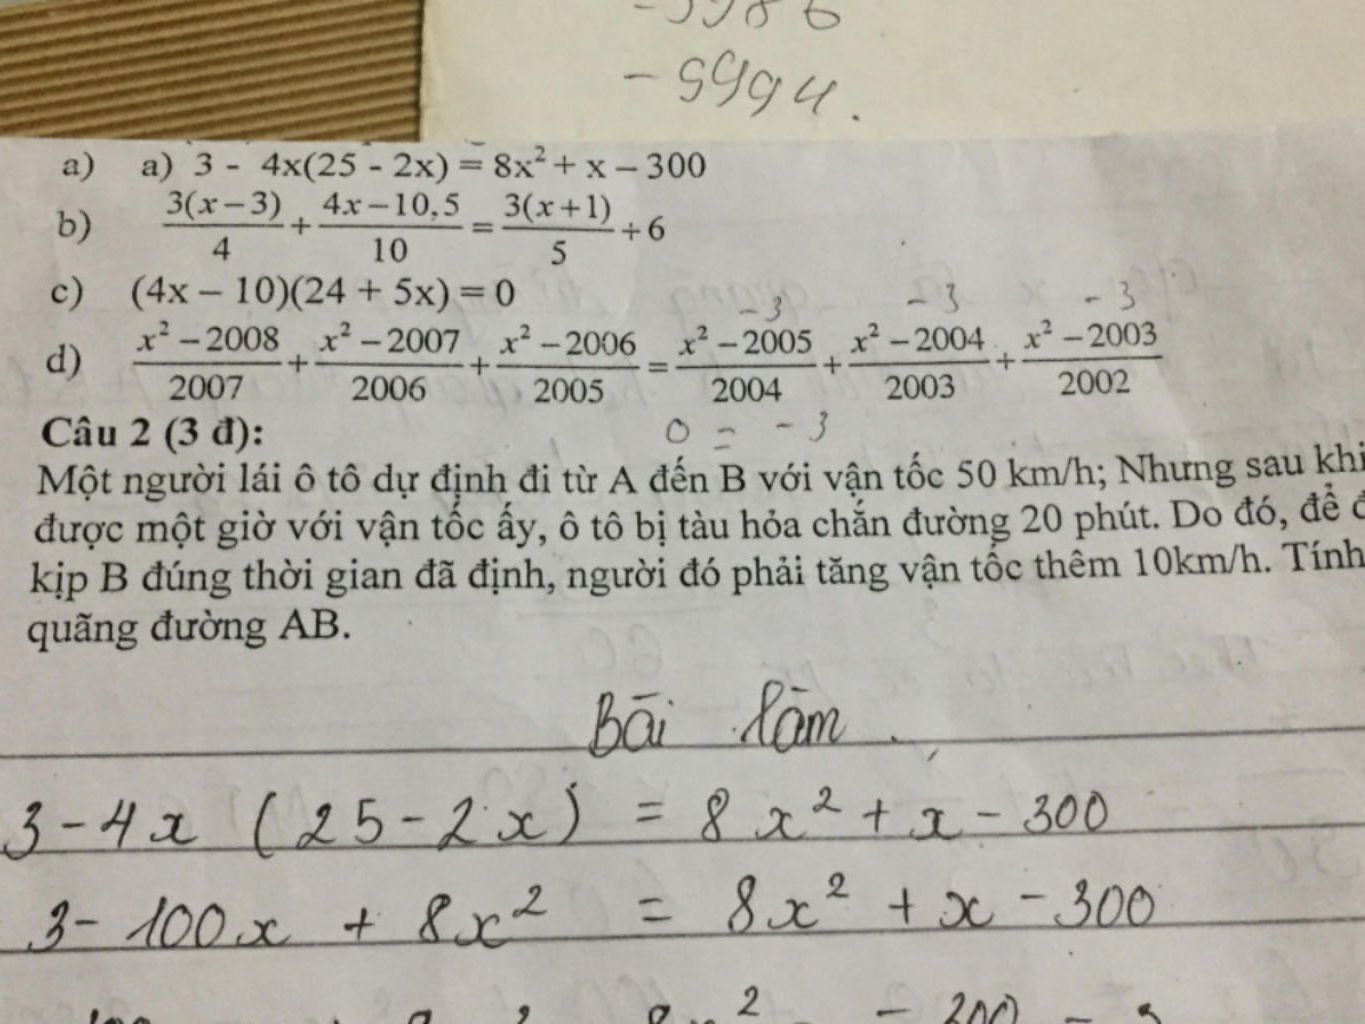 - 9994.
a) a) 3 - 4x(25 - 2x) = 8x² + x – 300
b) 3(x−3)/4 + 4x−10,5/10 = 3(x+1)/5 + 6
c) (4x – 10)(24 + 5x) = 0
- 3 - 3 - 3
d) x² − 2008/2007 + x² − 2007/2006 + x² − 2006/2005 = x² − 2005/2004 + x² − 2004/2003 + x² − 2003/2002
Câu 2 (3 đ):
0 = - 3
Một người lái ô tô dự định đi từ A đến B với vận tốc 50 km/h; Nhưng sau khi
được một giờ với vận tốc ấy, ô tô bị tàu hỏa chắn đường 20 phút. Do đó, để
kịp B đúng thời gian đã định, người đó phải tăng vận tốc thêm 10km/h. Tính
quãng đường AB.
Bài làm.
3 - 4x (25 - 2x) = 8x² + x - 300
3 - 100x + 8x² = 8x² + x - 300